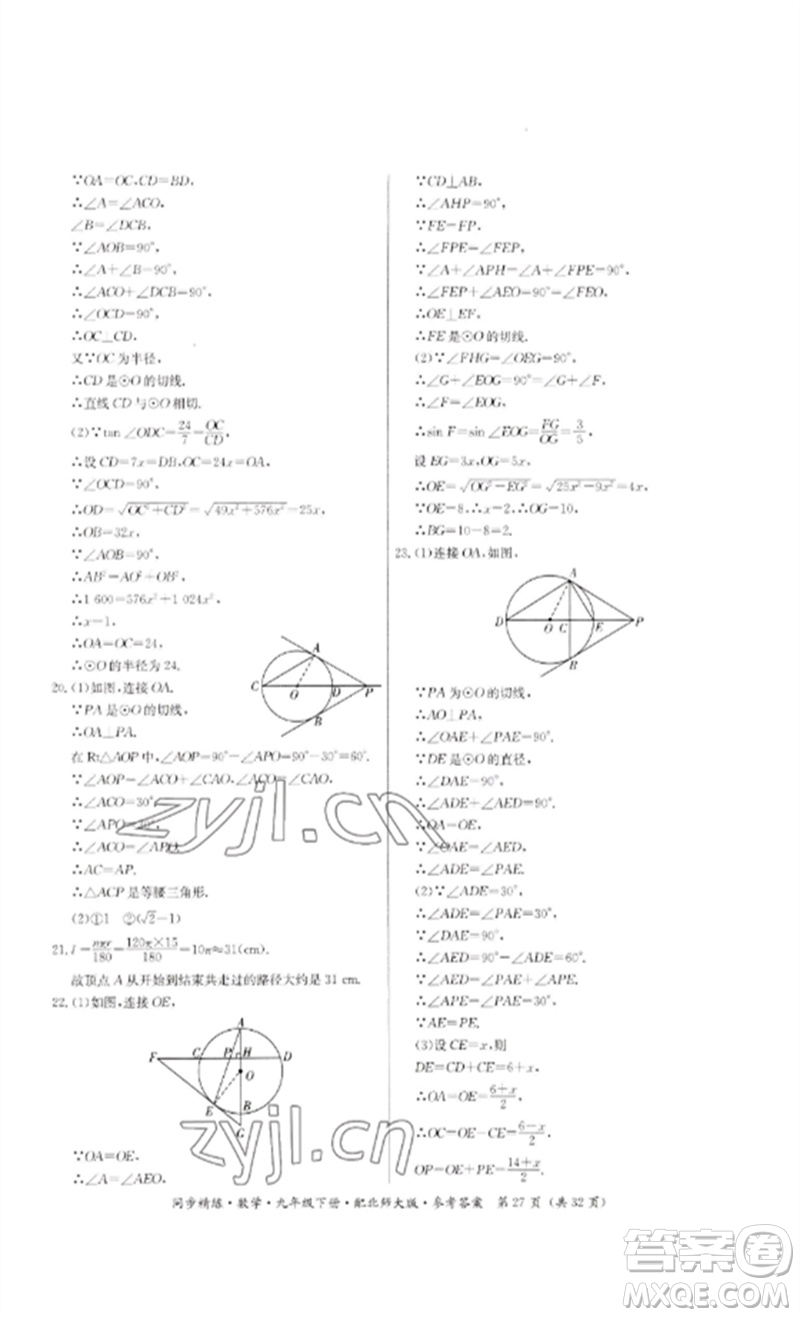 ∵OA=OC,CD=BD,
∴∠A=∠ACO,
∠B=∠DCB,
∵∠AOB=90°,
∴∠A+∠B=90°,
∴∠ACO+∠DCB=90°,
∴∠OCD=90°,
∴OC⊥CD,
又∵OC为半径,
∴CD是⊙O的切线,
∴直线CD与⊙O相切.
(2)∵tan∠ODC=24/7=OC/CD,
∴设CD=7x=DB,OC=24x=OA,
∵∠OCD=90°,
∴OD=√(OC²+CD²)=√(49x²+576x²)=25x,
∴OB=32x,
∵∠AOB=90°,
∴AB²=AO²+OB²,
∴1 600=576x²+1 024x²,
∴x=1,
∴OA=OC=24,
∴⊙O的半径为24.
20.(1)如图,连接OA.
∵PA是⊙O的切线,
∴OA⊥PA.
在Rt△AOP中,∠AOP=90°-∠APO=90°-30°=60°.
∵∠AOP=∠ACO+∠CAO,∠ACO=∠CAO,
∴∠ACO=30°
∵∠APO=30°,
∴∠ACO=∠APO,
∴AC=AP.
∴△ACP是等腰三角形.
(2)①1 ②(√2-1)
21.l=nπr/180=120π×15/180=10π≈31(cm).
故顶点A从开始到结束共走过的路径大约是31 cm.
22.(1)如图,连接OE,
∵OA=OE,
∴∠A=∠AEO,
∵CD⊥AB,
∴∠AHP=90°,
∵FE=FP,
∴∠FPE=∠FEP,
∵∠A+∠APH=∠A+∠FPE=90°,
∴∠FEP+∠AEO=90°=∠FEO,
∴OE⊥EF,
∴FE是⊙O的切线.
(2)∵∠FHG=∠OEG=90°,
∴∠G+∠EOG=90°=∠G+∠F,
∴∠F=∠EOG,
∴sin F=sin∠EOG=EG/OG=3/5,
设EG=3x,OG=5x,
∴OE=√(OG²-EG²)=√(25x²-9x²)=4x,
∵OE=8,∴x=2,∴OG=10,
∴BG=10-8=2.
23.(1)连接OA,如图,
∵PA为⊙O的切线,
∴AO⊥PA,
∴∠OAE+∠PAE=90°,
∵DE是⊙O的直径,
∴∠DAE=90°,
∴∠ADE+∠AED=90°,
∴OA=OE,
∵∠OAE=∠AED,
∴∠ADE=∠PAE.
(2)∵∠ADE=30°,
∴∠ADE=∠PAE=30°,
∵∠DAE=90°,
∴∠AED=90°-∠ADE=60°,
∵∠AED=∠PAE+∠APE,
∴∠APE=∠PAE=30°,
∵AE=PE.
(3)设CE=x,则
DE=CD+CE=6+x,
∴OA=OE=(6+x)/2,
∴OC=OE-CE=(6-x)/2,
OP=OE+PE=(14+x)/2.
同步精练·数学·九年级下册·配北师大版·参考答案 第27页(共32页)
zyjl.cn
zyjl.cn
答案卷
MXQE.COM